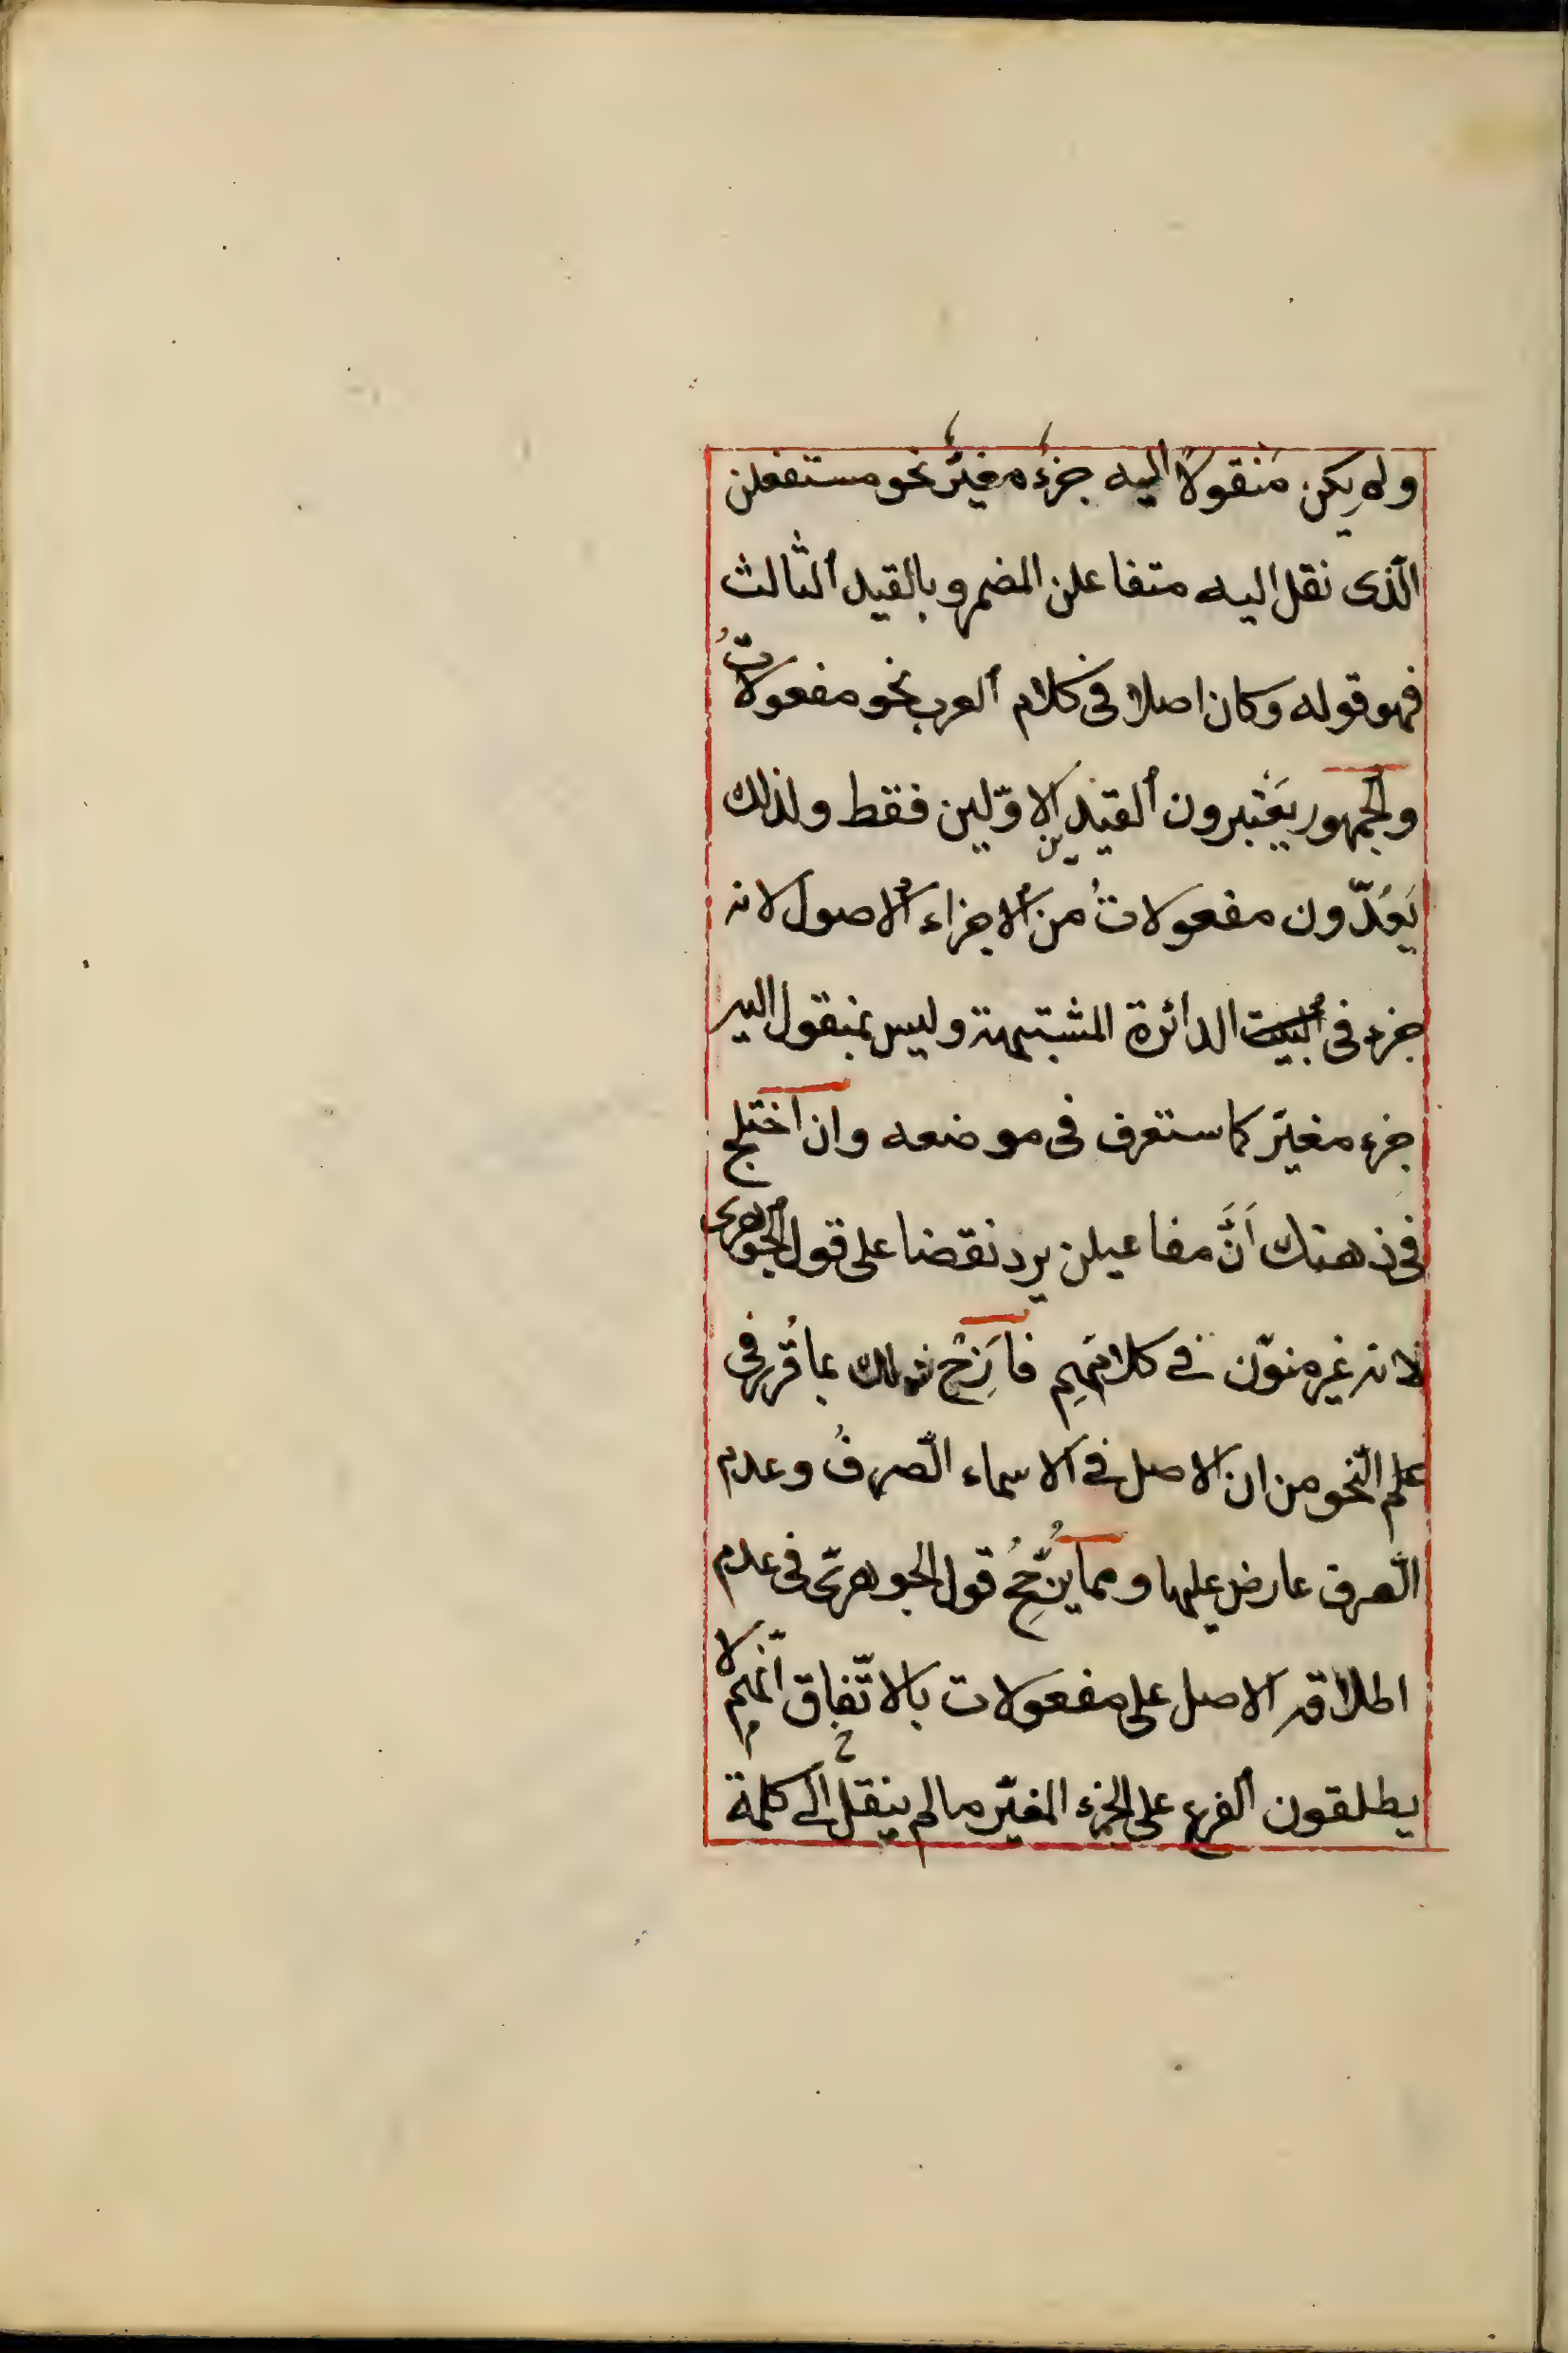 ولم يكن منقولا اليه جزءٌ مغيّرٌ نحو مستفعلن
الّذى نقل اليه متفاعلن المضمر وبالقيد الثّالث
فهو قوله وكان اصلا فى كلام العرب نحو مفعولاتُ
والجمهور يَعْتبرون القيدين الاوّلين فقط ولذلك
يَعُدّون مفعولاتُ من الاجزاء الاصول لانه
جزء فى البيت الدائرة المشتبهة وليس بمنقول اليه
جزء مغيّر كما ستعرف فى موضعه وان اختلج
فى ذهنك اَنَّ مفاعيلن يرد نقضا على قول الجوهرى
لانه غير منوّن فى كلامهِم فاَزِحْ ذلك بما قُرر فى
علم النّحو من ان الاصل فى الاسماء الصّرفُ وعدم
الصّرف عارض عليها ومما يُزَحِّحُ قول الجوهرىّ فى عدم
اطلاقه الاصل على مفعولات بالاتّفاق انّهم لا
يطلقون الفرع على الجزء المغيّر ما لم ينقل الى كلمة